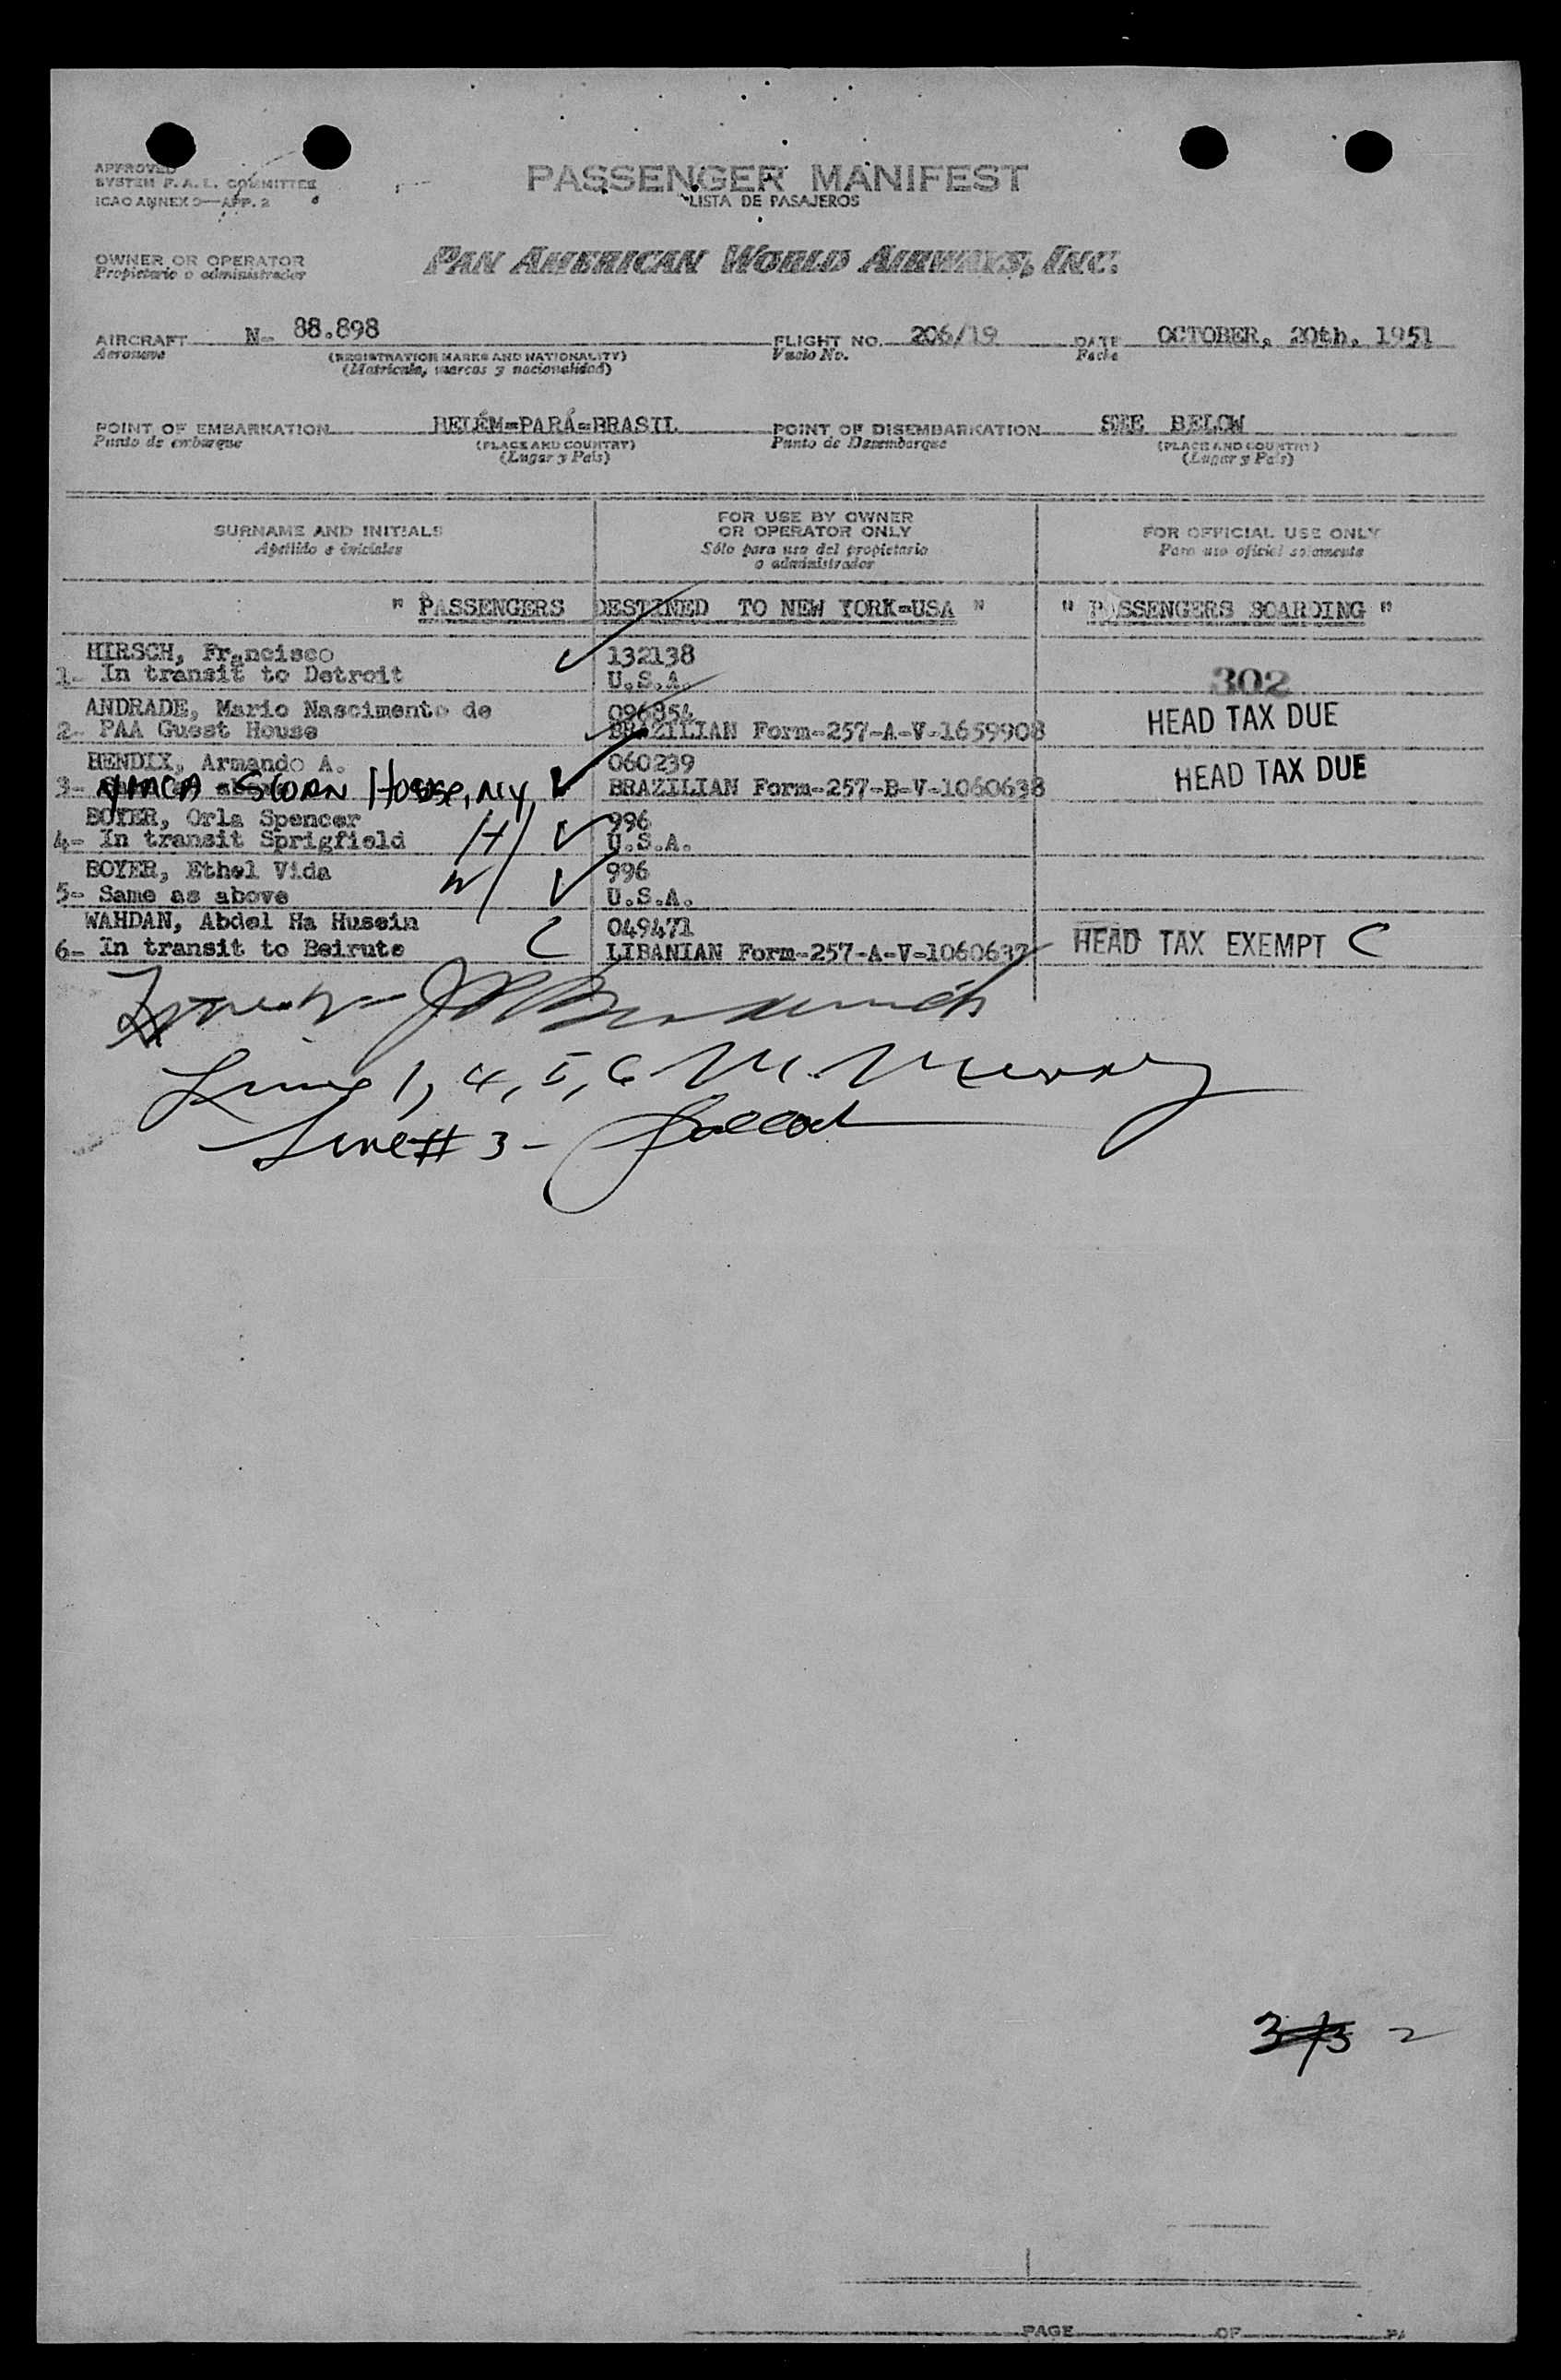 APPROVED
SYSTEM F.A.L. COMMITTEE
ICAO ANNEX 9—APP. 2
PASSENGER MANIFEST
LISTA DE PASAJEROS
OWNER OR OPERATOR
Propietario o administrador
PAN AMERICAN WORLD AIRWAYS, INC.
AIRCRAFT N- 88.898 FLIGHT NO. 206/19 DATE OCTOBER, 20th, 1951
Aeronave (REGISTRATION MARKS AND NATIONALITY) Vuelo No. Fecha
(Matrícula, marcas y nacionalidad)
POINT OF EMBARKATION BELÉM=PARÁ=BRASIL POINT OF DISEMBARKATION SEE BELOW
Punto de embarque (PLACE AND COUNTRY) Punto de Desembarque (PLACE AND COUNTRY)
(Lugar y País) (Lugar y País)
SURNAME AND INITIALS FOR USE BY OWNER OR OPERATOR ONLY FOR OFFICIAL USE ONLY
Apellido e iniciales Sólo para uso del propietario o administrador Para uso oficial solamente
" PASSENGERS DESTINED TO NEW YORK=USA " " PASSENGERS BOARDING "
HIRSCH, Francisco 132138
1- In transit to Detroit U.S.A. 302
ANDRADE, Mario Nascimento de 096854 HEAD TAX DUE
2- PAA Guest House BRAZILIAN Form-257-A-V-1659908
BENDIX, Armando A. 060239 HEAD TAX DUE
3- YMCA SLOAN House, NY, BRAZILIAN Form-257-B-V-1060638
BOYER, Orla Spencer H/ 996
4- In transit Sprigfield U.S.A.
BOYER, Ethel Vida W/ 996
5- Same as above U.S.A.
WAHDAN, Abdel Ha Husein 049471
6- In transit to Beirute C LIBANIAN Form-257-A-V-1060637 HEAD TAX EXEMPT C
Lines 1, 4, 5, 6 M. Murray
Line # 3 -
3/3 2
PAGE OF